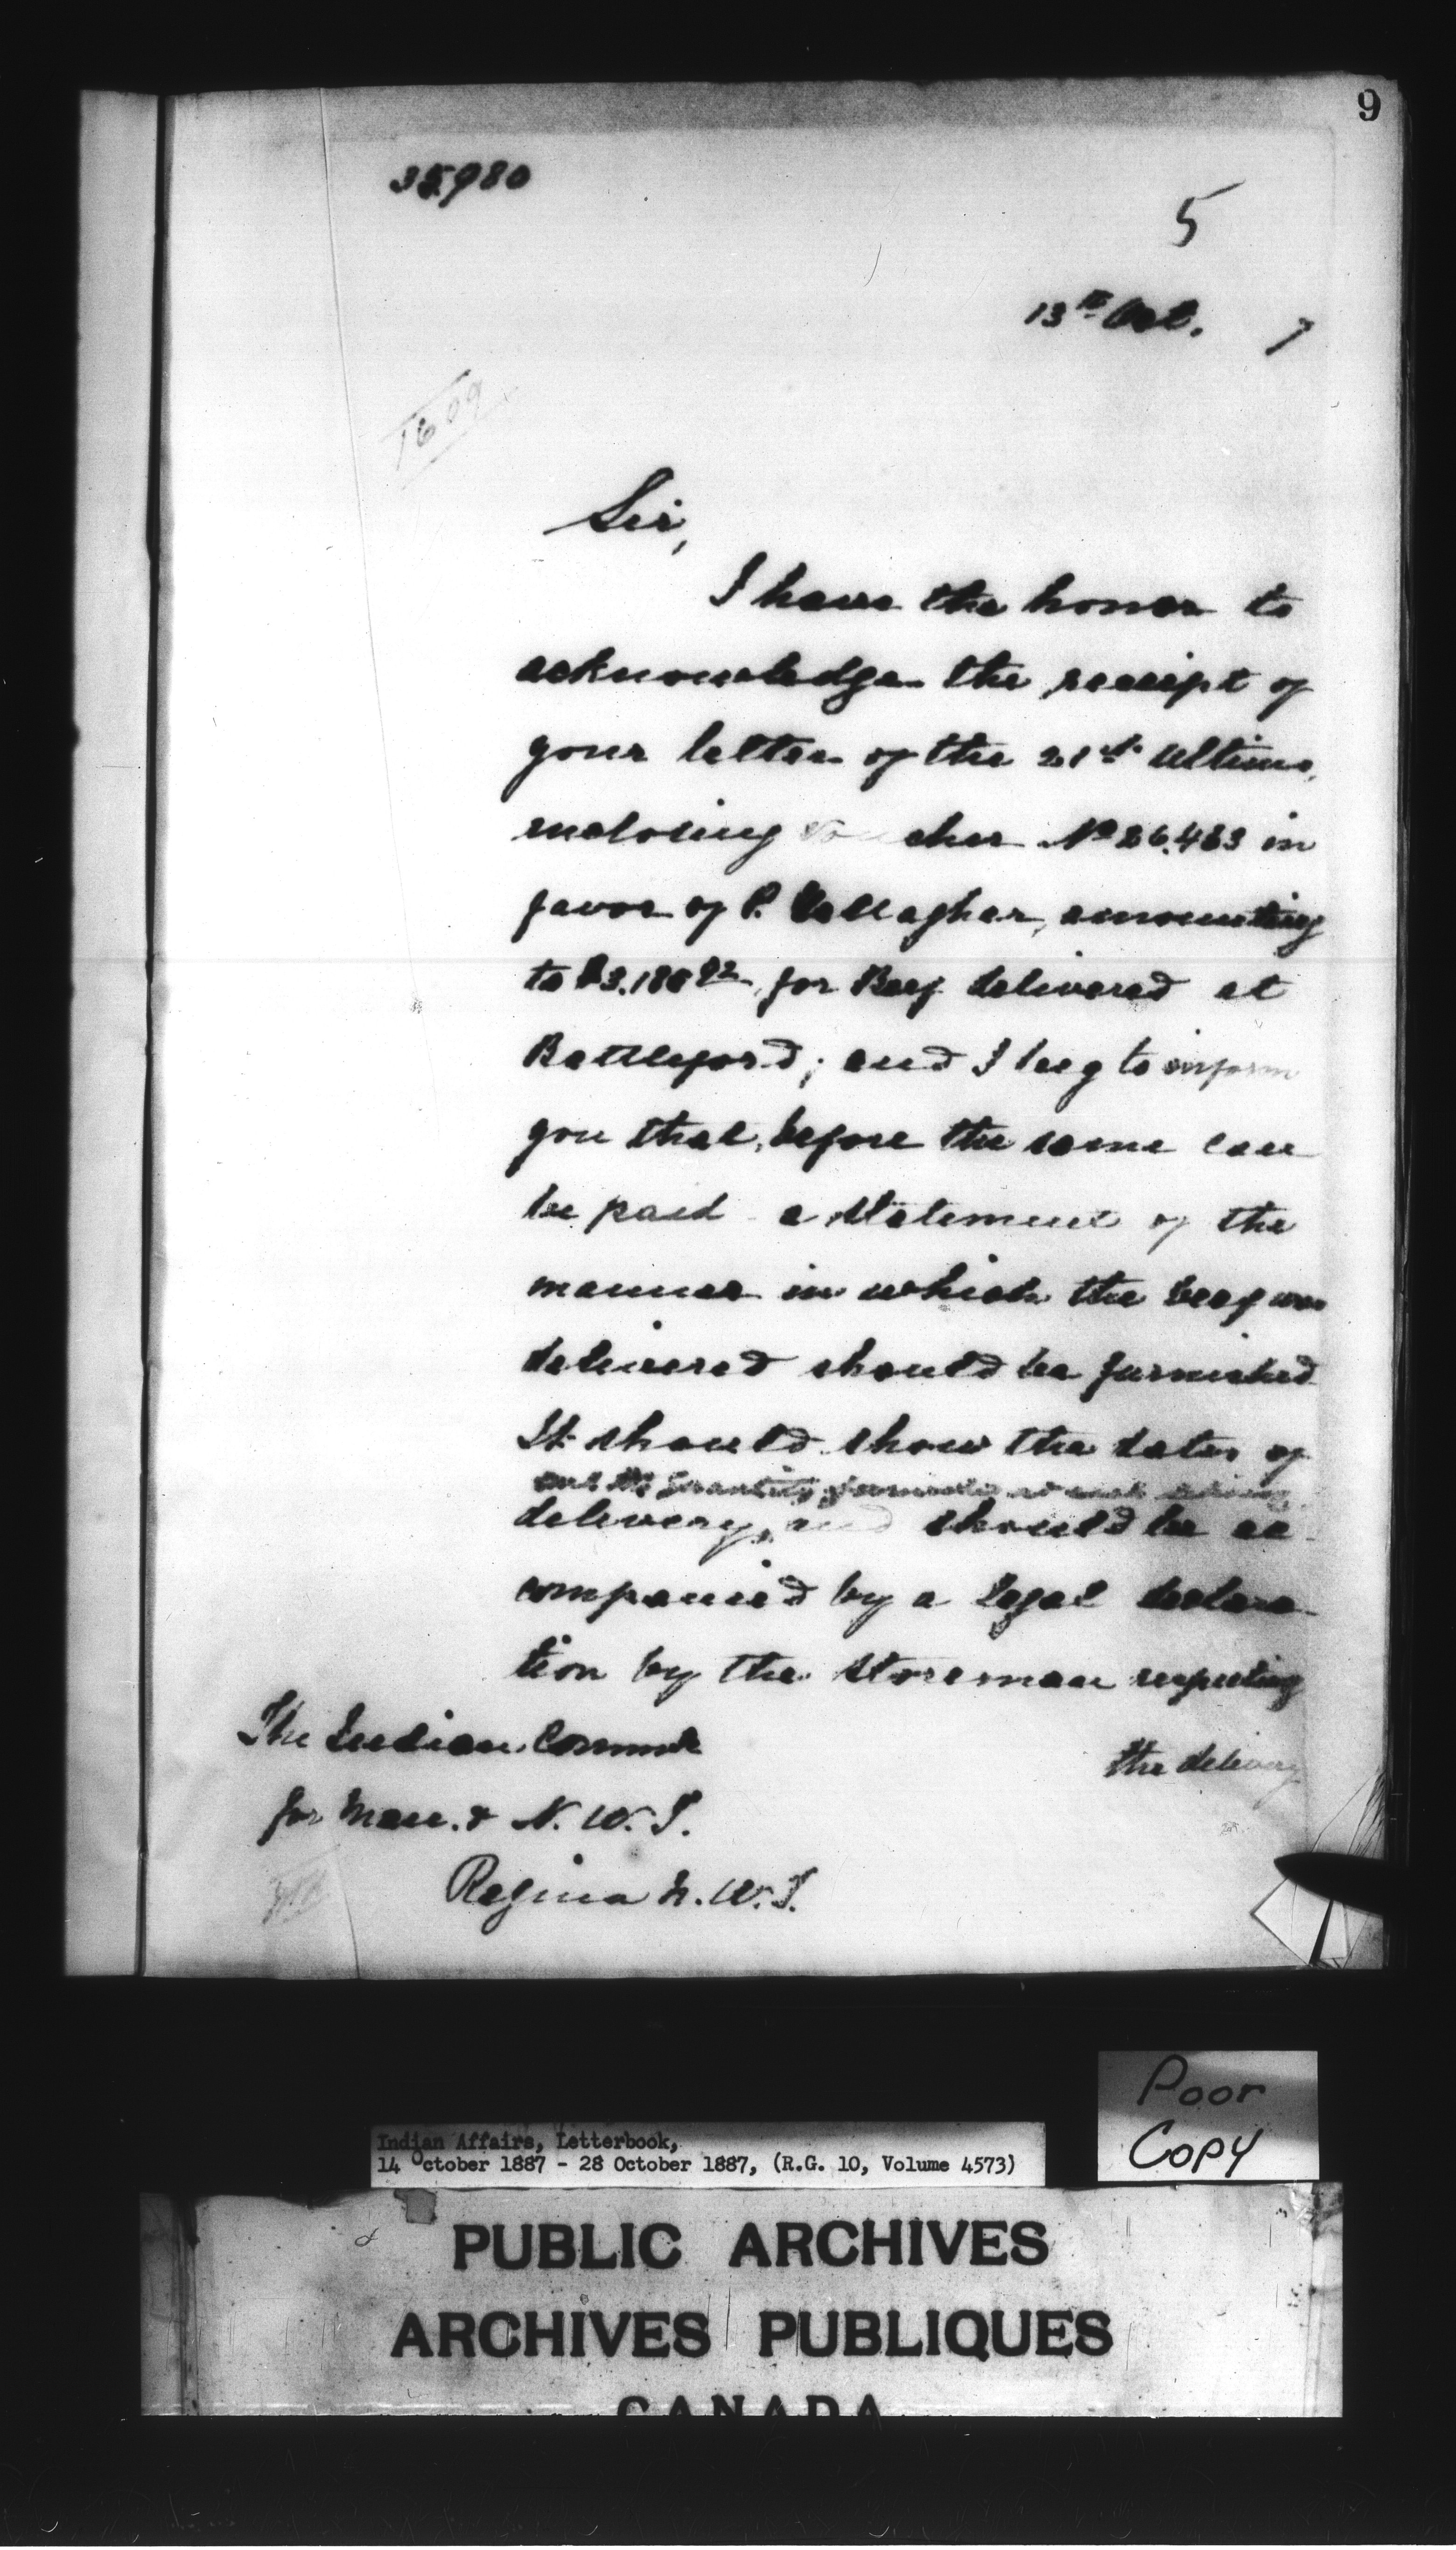 9
35980
5
13th Oct. 7
1609
Sir,
I have the honor to
acknowledge the receipt of
your letter of the 21st ultimo,
enclosing voucher No 26.463 in
favor of P. Gallagher, amounting
to for Beef delivered at
Battleford; and I beg to inform
you that, before the same can
be paid a statement of the
manner in which the beef was
delivered should be furnished
It should show the dates of
and the quantity furnished at each delivery
delivery, and should be ac
companied by a legal declara-
tion by the storeman respecting
The Indian Commr
the delivery
for Man. & N. W. T.
Regina N. W. T.
Poor
Copy
Indian Affairs, Letterbook,
14 October 1887 - 28 October 1887, (R.G. 10, Volume 4573)
PUBLIC ARCHIVES
ARCHIVES PUBLIQUES
CANADA